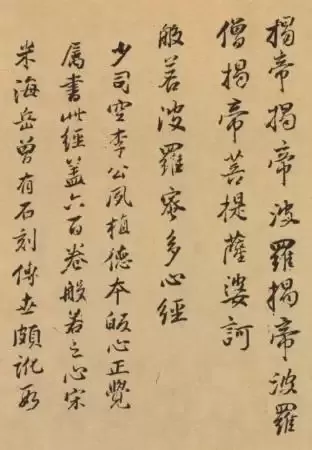 揭帝揭帝波羅揭帝波羅
僧揭帝菩提薩婆訶
般若波羅蜜多心經
少司空李公夙植德本皈心正覺
屬書此經蓋六百卷般若之心宋
米海岳曾有石刻傳世頗訛